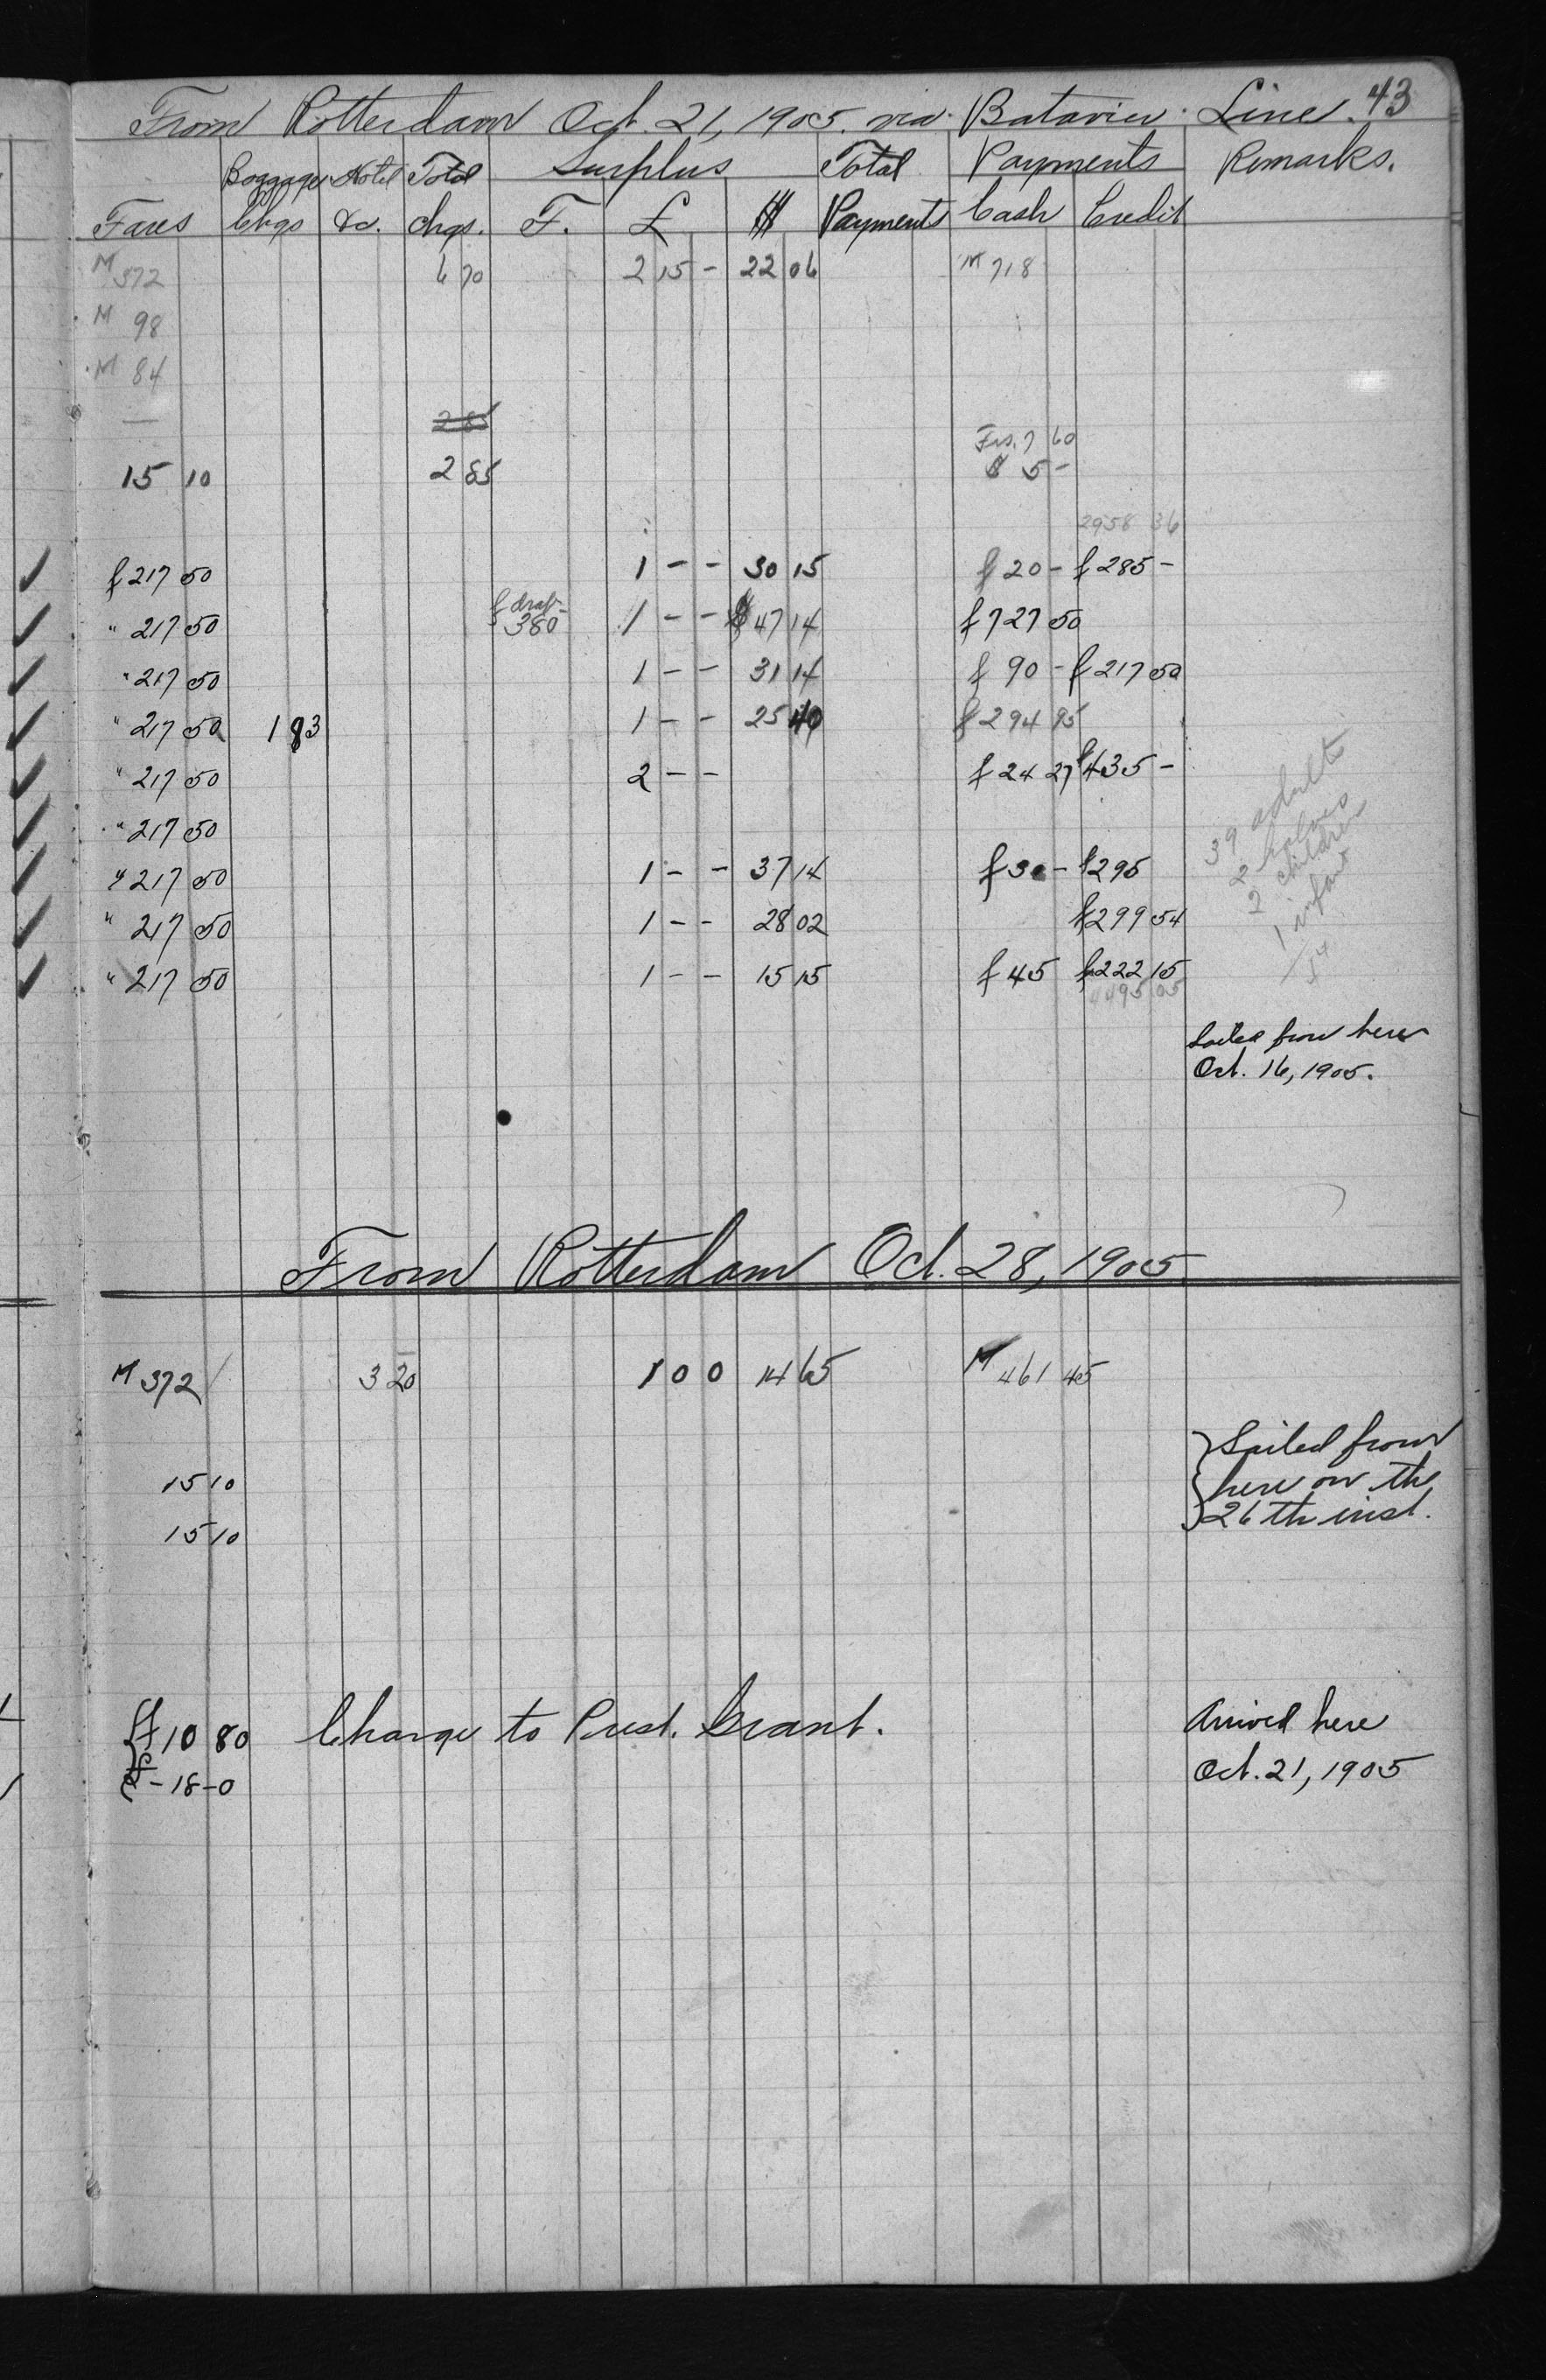 43
From Rotterdam Oct. 21, 1905. via Batavier Line.
Baggage Hotel Total Surplus Total Payments Remarks.
Fares Chgs &c. Chgs. F. £ $ Payments Cash Credit
M 372 6 70 2 15 - 22 06 M 718
M 98
M 84
2 85
Frs. 7 60
15 10 2 85 $ 5 -
2958 36
f 217 50 1 - - 30 15 f 20 - f 285 -
" 217 50 f draf- 380 1 - - $ 47 14 f 727 50
" 217 50 1 - - 31 14 f 90 - f 217 50
" 217 50 1 83 1 - - 25 40 f 294 95
" 217 50 2 - - f 24 27 f 435 -
" 217 50
" 217 50 1 - - 37 14 f 30 - f 295
" 217 50 1 - - 28 02 f 299 54
" 217 50 1 - - 15 15 f 45 f 222 15
4495 05
39 adults
2 halves
2 children
1 infant
Sailed from here
Oct. 16, 1905.
From Rotterdam Oct. 28, 1905
M 372 3 20 1 0 0 14 65 M 461 45
15 10
15 10
Sailed from
here on the
26th inst.
f 10 80 Charge to Prest. Grant.
£ - 18 - 0
Arrived here
Oct. 21, 1905